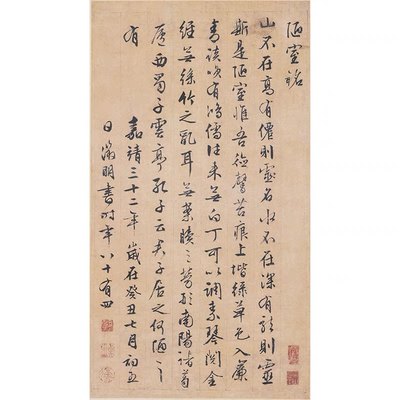 陋室銘
山不在高有僊則靈名水不在深有龍則靈
斯是陋室惟吾德馨苔痕上堦綠草色入簾
青談咲有鴻儒往來無白丁可以調素琴閱金
經無絲竹之亂耳無案牘之勞形南陽諸葛
廬西蜀子雲亭孔子云夫子居之何陋之
有　嘉靖三十二年歲在癸丑七月初五
日徵明書時年八十有四